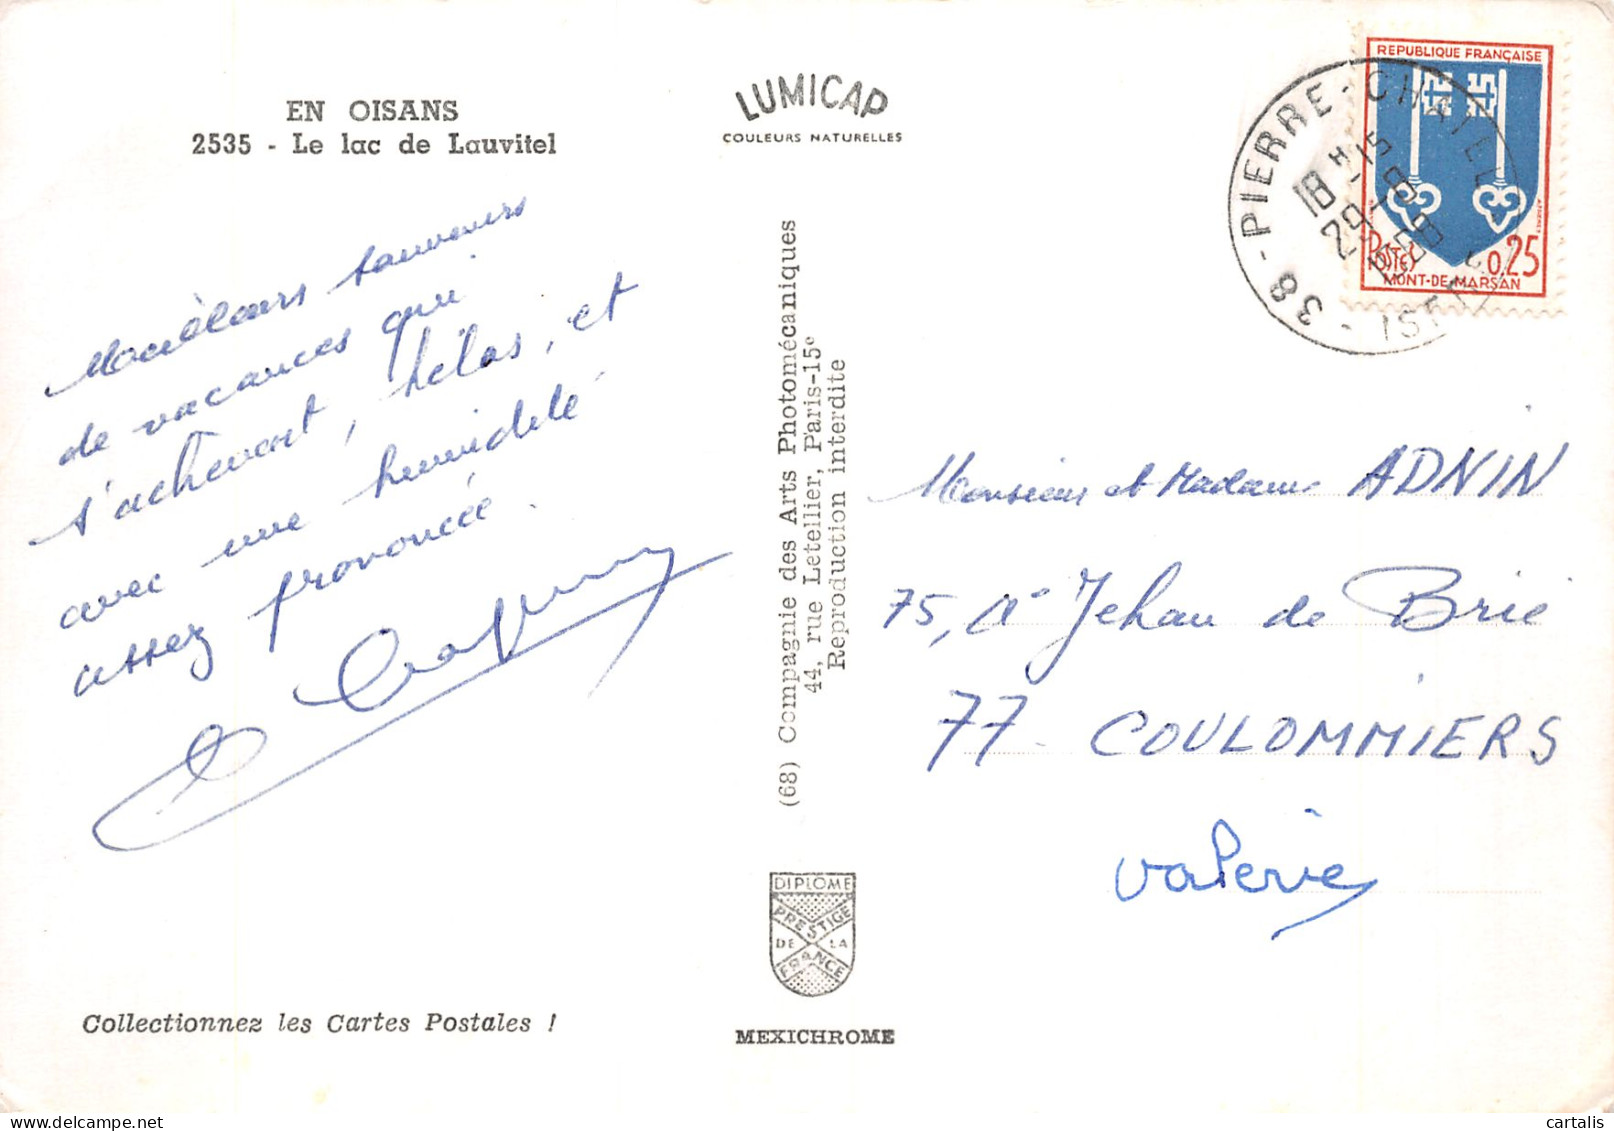 EN OISANS
2535 - Le lac de Lauvitel
Meilleurs souvenirs
de vacances qui
s'achèvent, hélas, et
avec une humidité
assez prononcée.
LUMICAP
COULEURS NATURELLES
(68) Compagnie des Arts Photomécaniques
44, rue Letellier, Paris-15e
Reproduction interdite
DIPLOME
PRESTIGE
DE LA
FRANCE
MEXICHROME
Collectionnez les Cartes Postales !
REPUBLIQUE FRANÇAISE
POSTES
0,25
MONT-DE-MARSAN
38 - PIERRE-CHATEL - ISERE
18 H 15
29-8
Monsieur et Madame ADNIN
75, Jehan de Brie
77 - COULOMMIERS
Valérie
cartalis